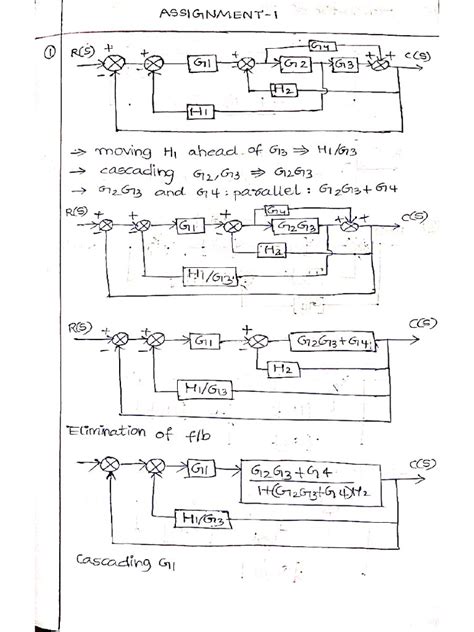 ASSIGNMENT-1
① R(S) + + G1 + G4 G2 G3 + + C(S)
- - - H2
H1
→ moving H1 ahead of G3 ⇒ H1/G3
→ cascading G2, G3 ⇒ G2G3
→ G2G3 and G4 : parallel : G2G3 + G4
R(S) + + G1 + G4 G2G3 + + C(S)
H2
H1/G3
R(S) + + G1 + G2G3+G4 C(S)
H2
H1/G3
Elimination of f/b
G1 G2G3+G4 C(S)
1+(G2G3+G4)H2
H1/G3
Cascading G1